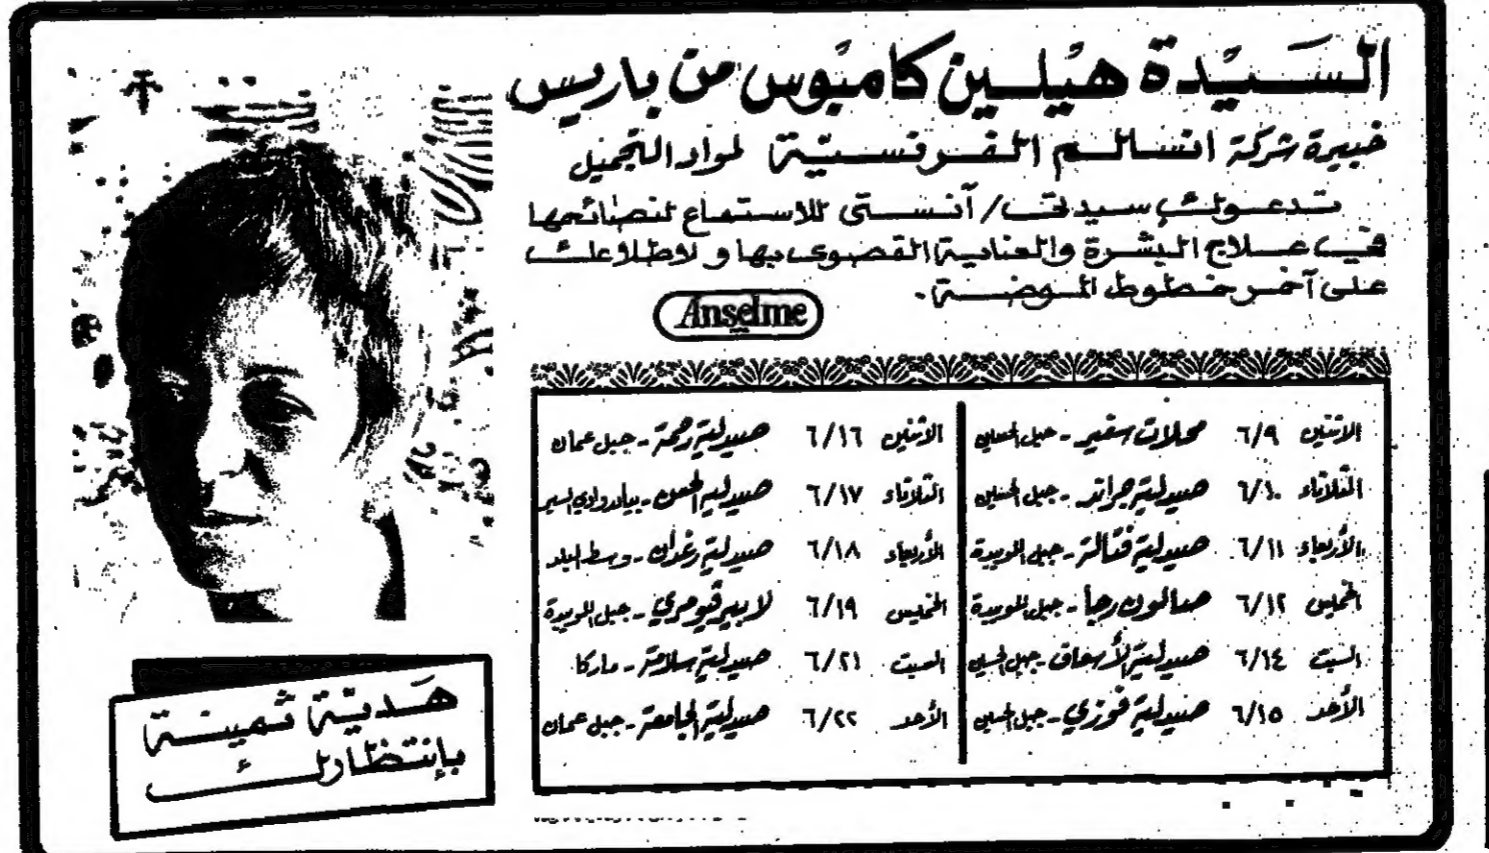 السَيّدة هيلين كامبوس من باريس
خبيرة شركة انسالم الفرنسيّة لمواد التجميل
تدعوك سيدتي/آنستي للاستماع لنصائحها
في علاج البشرة والعناية القصوى بها و لاطلاعك
على آخر خطوط الموضة.
Anselme
الاثنين ٦/٩ محلات سفير - جبل الحسين
الثلاثاء ٦/١٠ صيدلية جراند - جبل الحسين
الأربعاء ٦/١١ صيدلية - جبل اللويبدة
الخميس ٦/١٢ صالون رجا - جبل اللويبدة
السبت ٦/١٤ صيدلية الأسعاف - جبل الحسين
الأحد ٦/١٥ صيدلية فوزي - جبل الحسين
الاثنين ٦/١٦ صيدلية رحمة - جبل عمان
الثلاثاء ٦/١٧ صيدلية - بيادر وادي السير
الأربعاء ٦/١٨ صيدلية رغدان - وسط البلد
الخميس ٦/١٩ لابيرفيومري - جبل اللويبدة
السبت ٦/٢١ صيدلية سلامة - ماركا
الأحد ٦/٢٢ صيدلية الجامعة - جبل عمان
هَديّة ثمينة
بإنتظارك